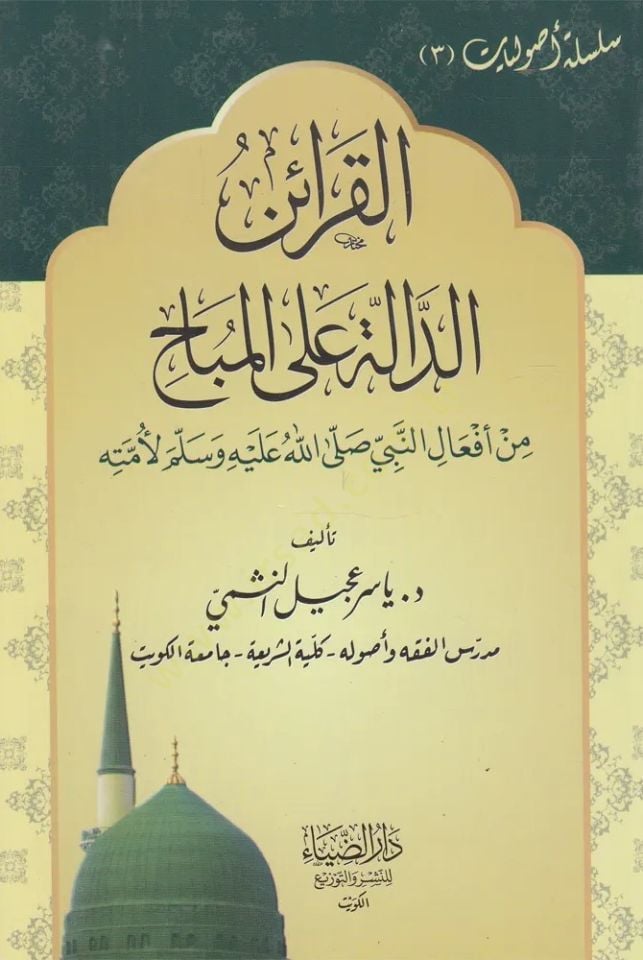 سلسلة أصوليات (٣)
القرائن
الدَّالة عَلى المُبَاح
مِنْ أفْعَالِ النَّبِيِّ صَلَّى اللهُ عَلَيْهِ وَسَلَّمَ لأُمَّتِهِ
تأليف
د. ياسر عجيل النشميّ
مدرّس الفقه وأصوله - كليّة الشريعة - جامعة الكويت
دَارُ الضِّيَاء
للنَّشْرِ وَالتَّوزِيْع
الكويت